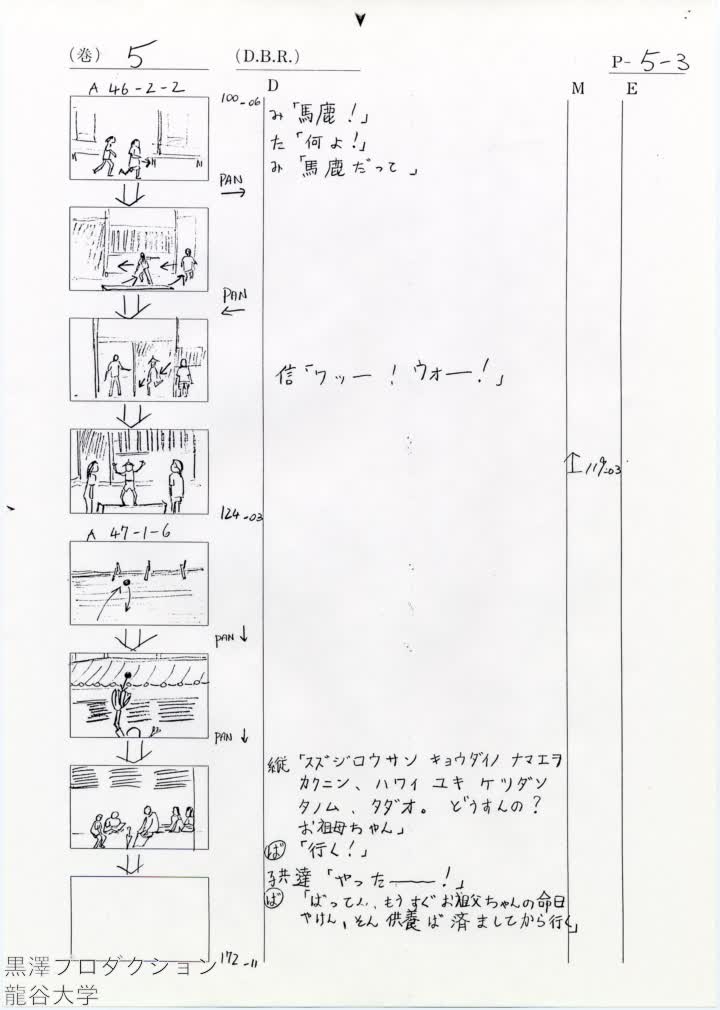 (巻) 5 (D.B.R.) P- 5-3
A 46-2-2
D M E
100-06
み「馬鹿!」
た「何よ!」
み「馬鹿だって」
PAN
PAN
信「ワッー! ウォー!」
119-03
124-03
A 47-1-6
PAN
PAN
縦「スズジロウサン キョウダイノ ナマエヲ
カクニン、ハワイ ユキ ケツダン
タノム、タダオ。どうすんの?
お祖母ちゃん」
ば「行く!」
子供達「やったー!」
ば「ばってん、もうすぐお祖父ちゃんの命日
やけん、そん供養ば済ましてから行く」
172-11
黒澤プロダクション
龍谷大学